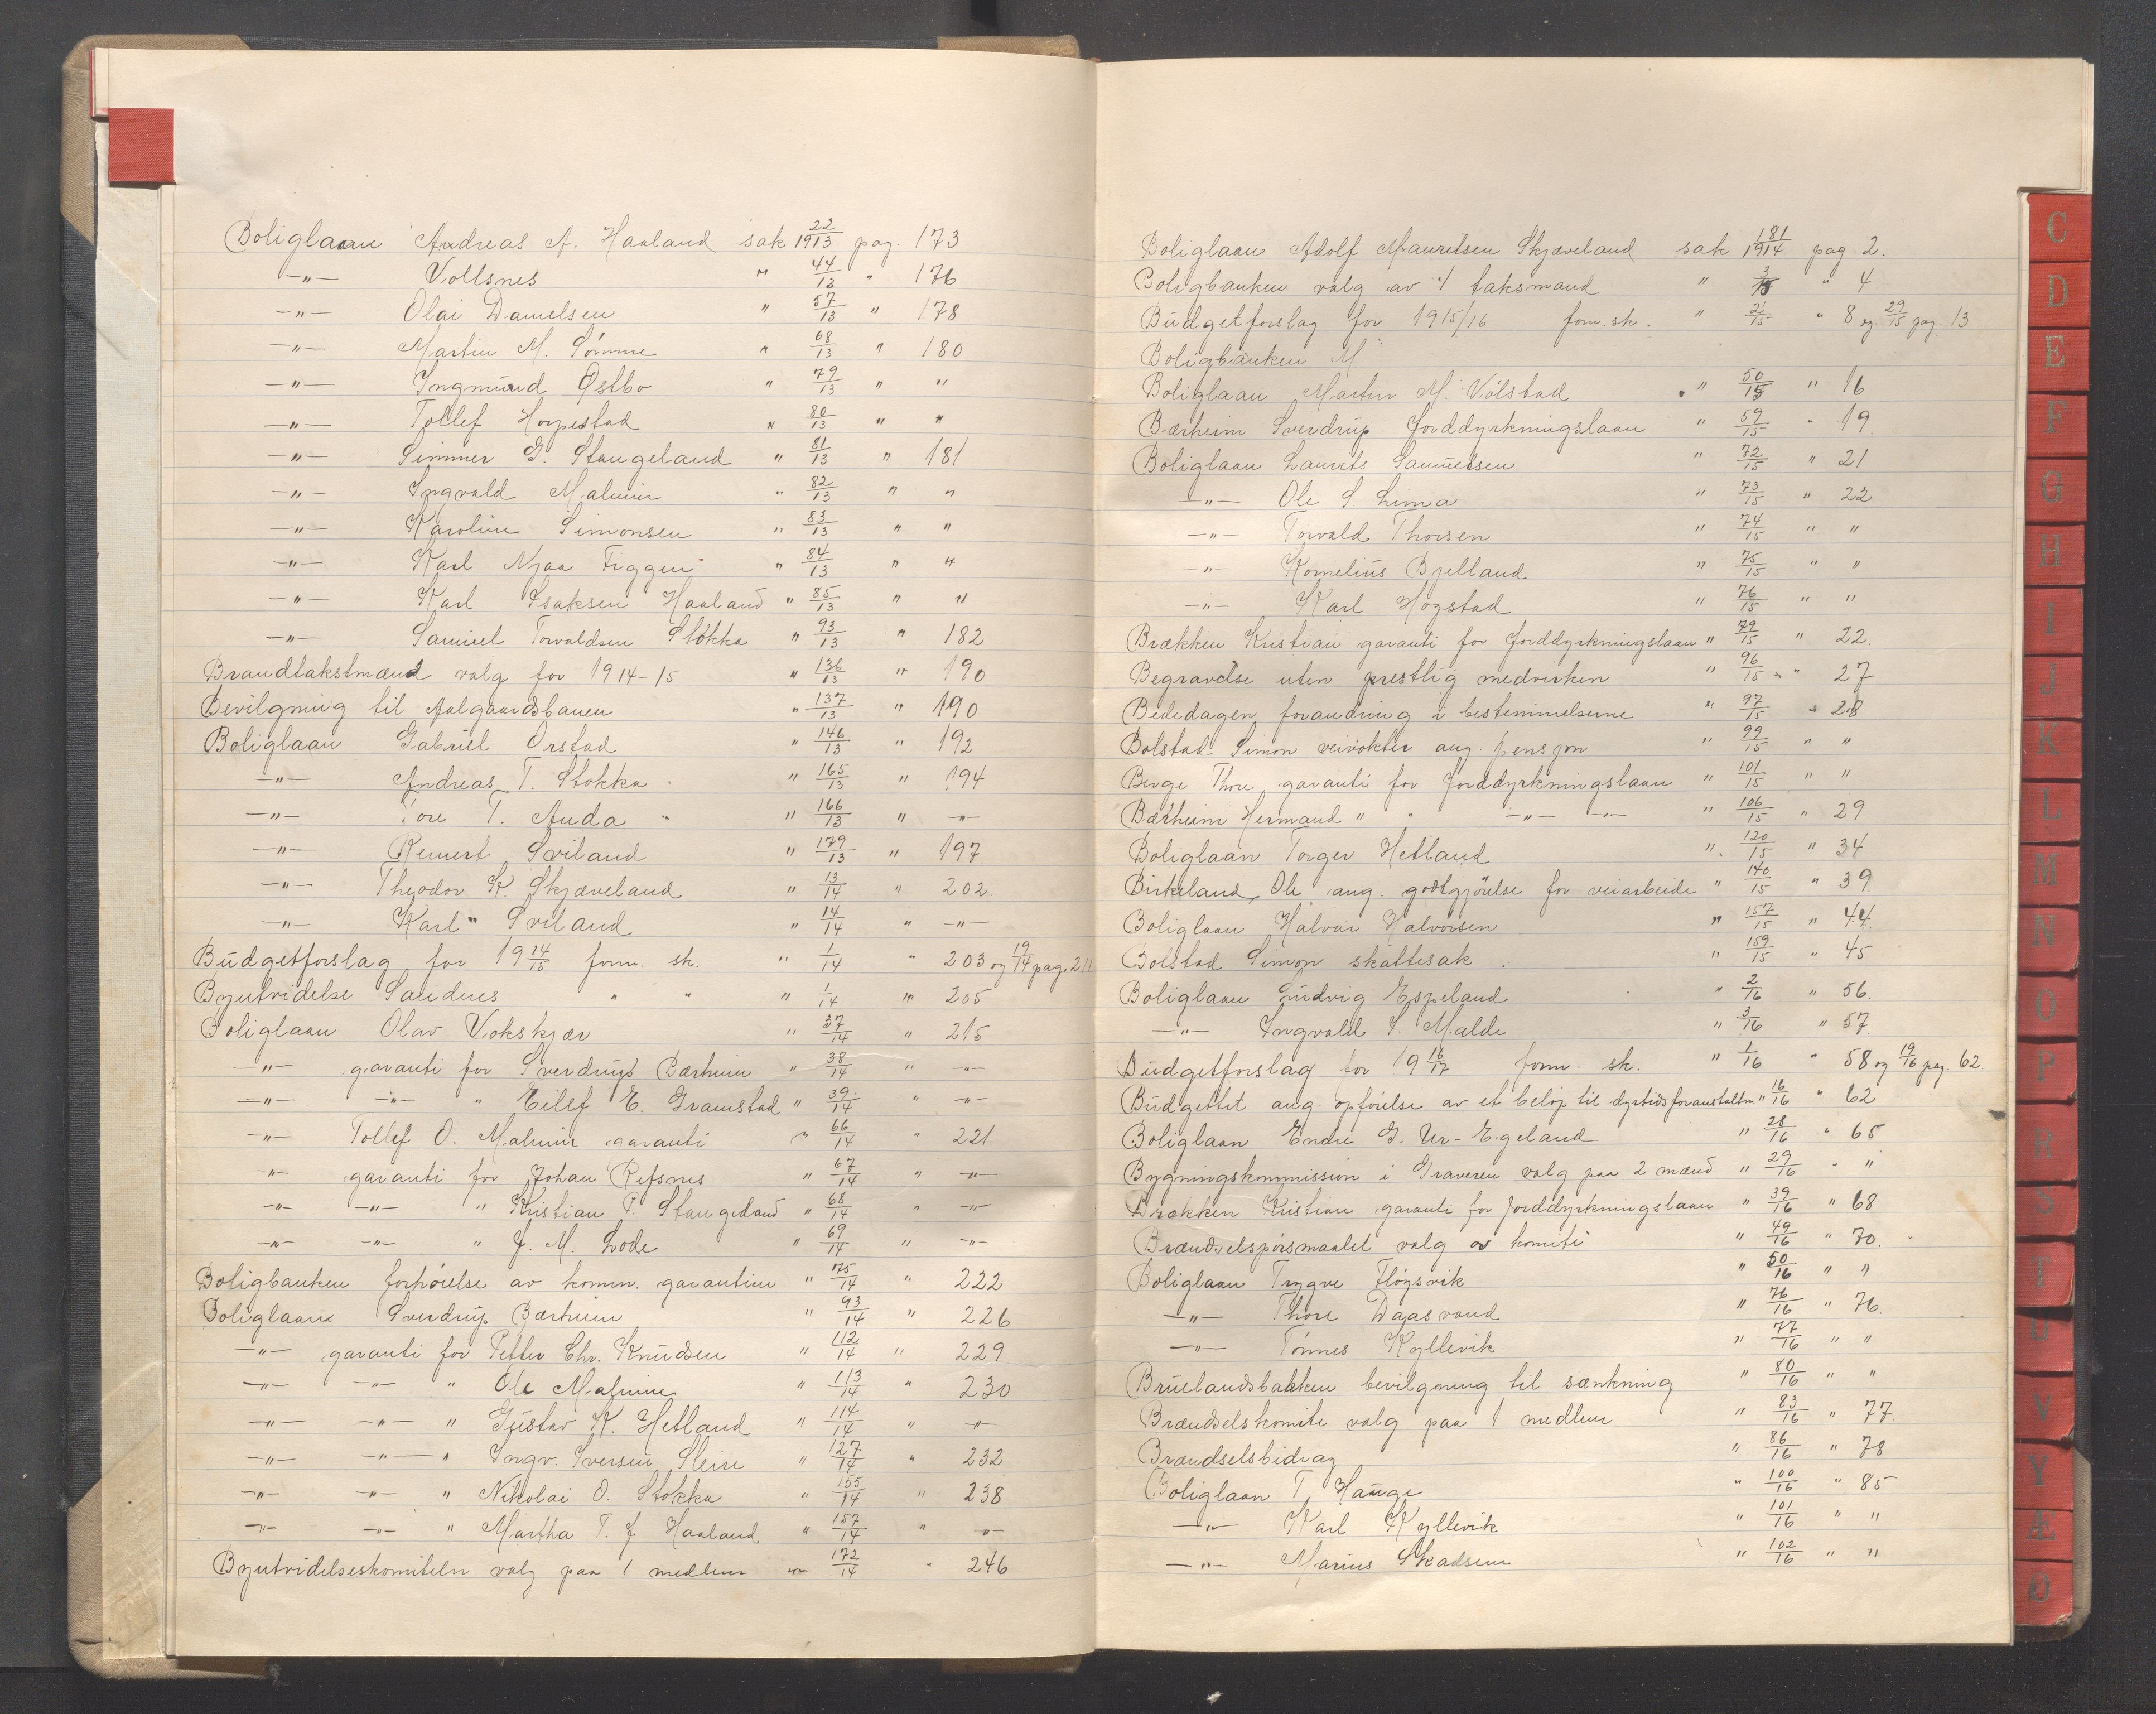 Boliglaan Andreas A. Haaland sak 22/1913 pag. 173
—"— Vollsnes " 44/13 " 176
—"— Olai Danielsen " 57/13 " 178
—"— Martin M. Sømme " 68/13 " 180
—"— Ingmund Østbø " 79/13 " "
—"— Tollef Horpestad " 80/13 " "
—"— Simmer G. Stangeland " 81/13 " 181
—"— Ingvald Malmin " 82/13 " "
—"— Karoline Simonsen " 83/13 " "
—"— Karl Njaa Figgen " 84/13 " "
—"— Karl Isaksen Haaland " 85/13 " "
—"— Samuel Torvaldsen Stokka " 93/13 " 182
Brandtakstmænd valg for 1914-15 " 136/13 " 190
Bevilgning til Aalgaardsbanen " 137/13 " 190
Boliglaan Gabriel Orstad " 146/13 " 192
—"— Andreas T. Stokka " 165/13 " 194
—"— Tore T. Auda " 166/13 " —"—
—"— Remert Sviland " 179/13 " 197
—"— Theodor K. Skjæveland " 13/14 " 202
—"— Karl " Sviland " 14/14 " —"—
Budgetforslag for 19 14/15 form. sk. " 1/14 " 203 og 19/14 pag. 211
Byutvidelse Sandnes " " " 1/14 " 205
Boliglaan Olav Vokskjær " 37/14 " 215
—"— garanti for Sverdrup Bærheim " 38/14 " —"—
—"— —"— " Eilef E. Gramstad " 39/14 " —"—
—"— Tollef O. Malmin garanti " 66/14 " 221
—"— garanti for Johan Refsnes " 67/14 " —"—
—"— —"— " Kristian P. Stangeland " 68/14 " —"—
—"— —"— " J. M. Lode " 69/14 " —"—
Boligbanken forhøielse av komm. garantien " 75/14 " 222
Boliglaan Sverdrup Bærheim " 93/14 " 226
—"— garanti for Petter Chr. Knudsen " 112/14 " 229
—"— —"— " Ole Malmin " 113/14 " 230
—"— —"— " Gustav K. Hetland " 114/14 " —"—
—"— —"— " Ingv. Iversen Sleire " 127/14 " 232
—"— —"— " Nikolai O. Stokka " 155/14 " 238
—"— —"— " Martha T. J Haaland " 157/14 " —"—
Byutvidelseskomiteln valg paa 1 medlem —"— 172/14 " 246
Boliglaan Adolf Mauritsen Skjæveland sak 181/1914 pag. 2.
Boligbanken valg av 1 taksmand " 3/15 " 4
Budgetforslag for 1915/16 form. sk. " 2/15 " 8 og 29/15 pag. 13
Boligbanken M
Boliglaan Martin M. Volstad " 50/15 " 16
Bærheim Sverdrup Jorddyrkningslaan " 59/15 " 19
Boliglaan Laurits Samuelsen " 72/15 " 21
—"— Ole S. Lima " 73/15 " 22
—"— Torvald Thorsen " 74/15 " "
—"— Kornelius Bjelland " 75/15 " "
—"— Karl Hogstad " 76/15 " "
Brækken Kristian garanti for Jorddyrkningslaan " 79/15 " 22.
Begravelse uten prestlig medvirken " 96/15 " " 27
Bededagen forandring i bestemmelserne " 97/15 " 28
Bolstad Simon veivokter ang. pensjon " 99/15 " "
Berge Thore garanti for Jorddyrkningslaan " 101/15 " "
Bærheim Hermand " " —"— —"— " 106/15 " 29
Boliglaan Torger Hetland " 120/15 " 34
Birkeland, Ole ang. godtgjørelse for veiarbeide " 140/15 " 39
Boliglaan Halvar Halvorsen " 157/15 " 44
Bolstad Simon skattesak " 159/15 " 45
Boliglaan Ludvig Espeland " 2/16 " 56.
—"— Ingvald S. Malde " 3/16 " 57
Budgetforslag for 19 16/17 form. sk. " 1/16 " 58 og 19/16 pag. 62.
Budgettet ang. opførelse av et beløp til dyrtidsforanstaltn. " 16/16 " 62
Boliglaan Endre G. Ur-Egeland " 28/16 " 65
Bygningskommission i Graveren valg paa 2 mænd " 29/16 " "
Brækken Kristian garanti for Jorddyrkningslaan " 39/16 " 68
Brændselspørsmaalet valg av komite " 49/16 " 70.
Boliglaan Trygve Fløysvik " 50/16 " "
—"— Thore Daasvand " 76/16 " 76.
—"— Tønnes Kyllevik " 77/16 " "
Bruelandsbakken bevilgning til sænkning " 80/16 " "
Brændselskomite valg paa 1 medlem " 83/16 " 77.
Brændselsbidrag " 86/16 " 78
Boliglaan T. Hauge " 100/16 " 85
—"— Karl Kyllevik " 101/16 " "
—"— Marius Skadsem " 102/16 " "
C
D
E
F
G
H
I
J
K
L
M
N
O
P
R
S
T
U
V
Y
Æ
Ø